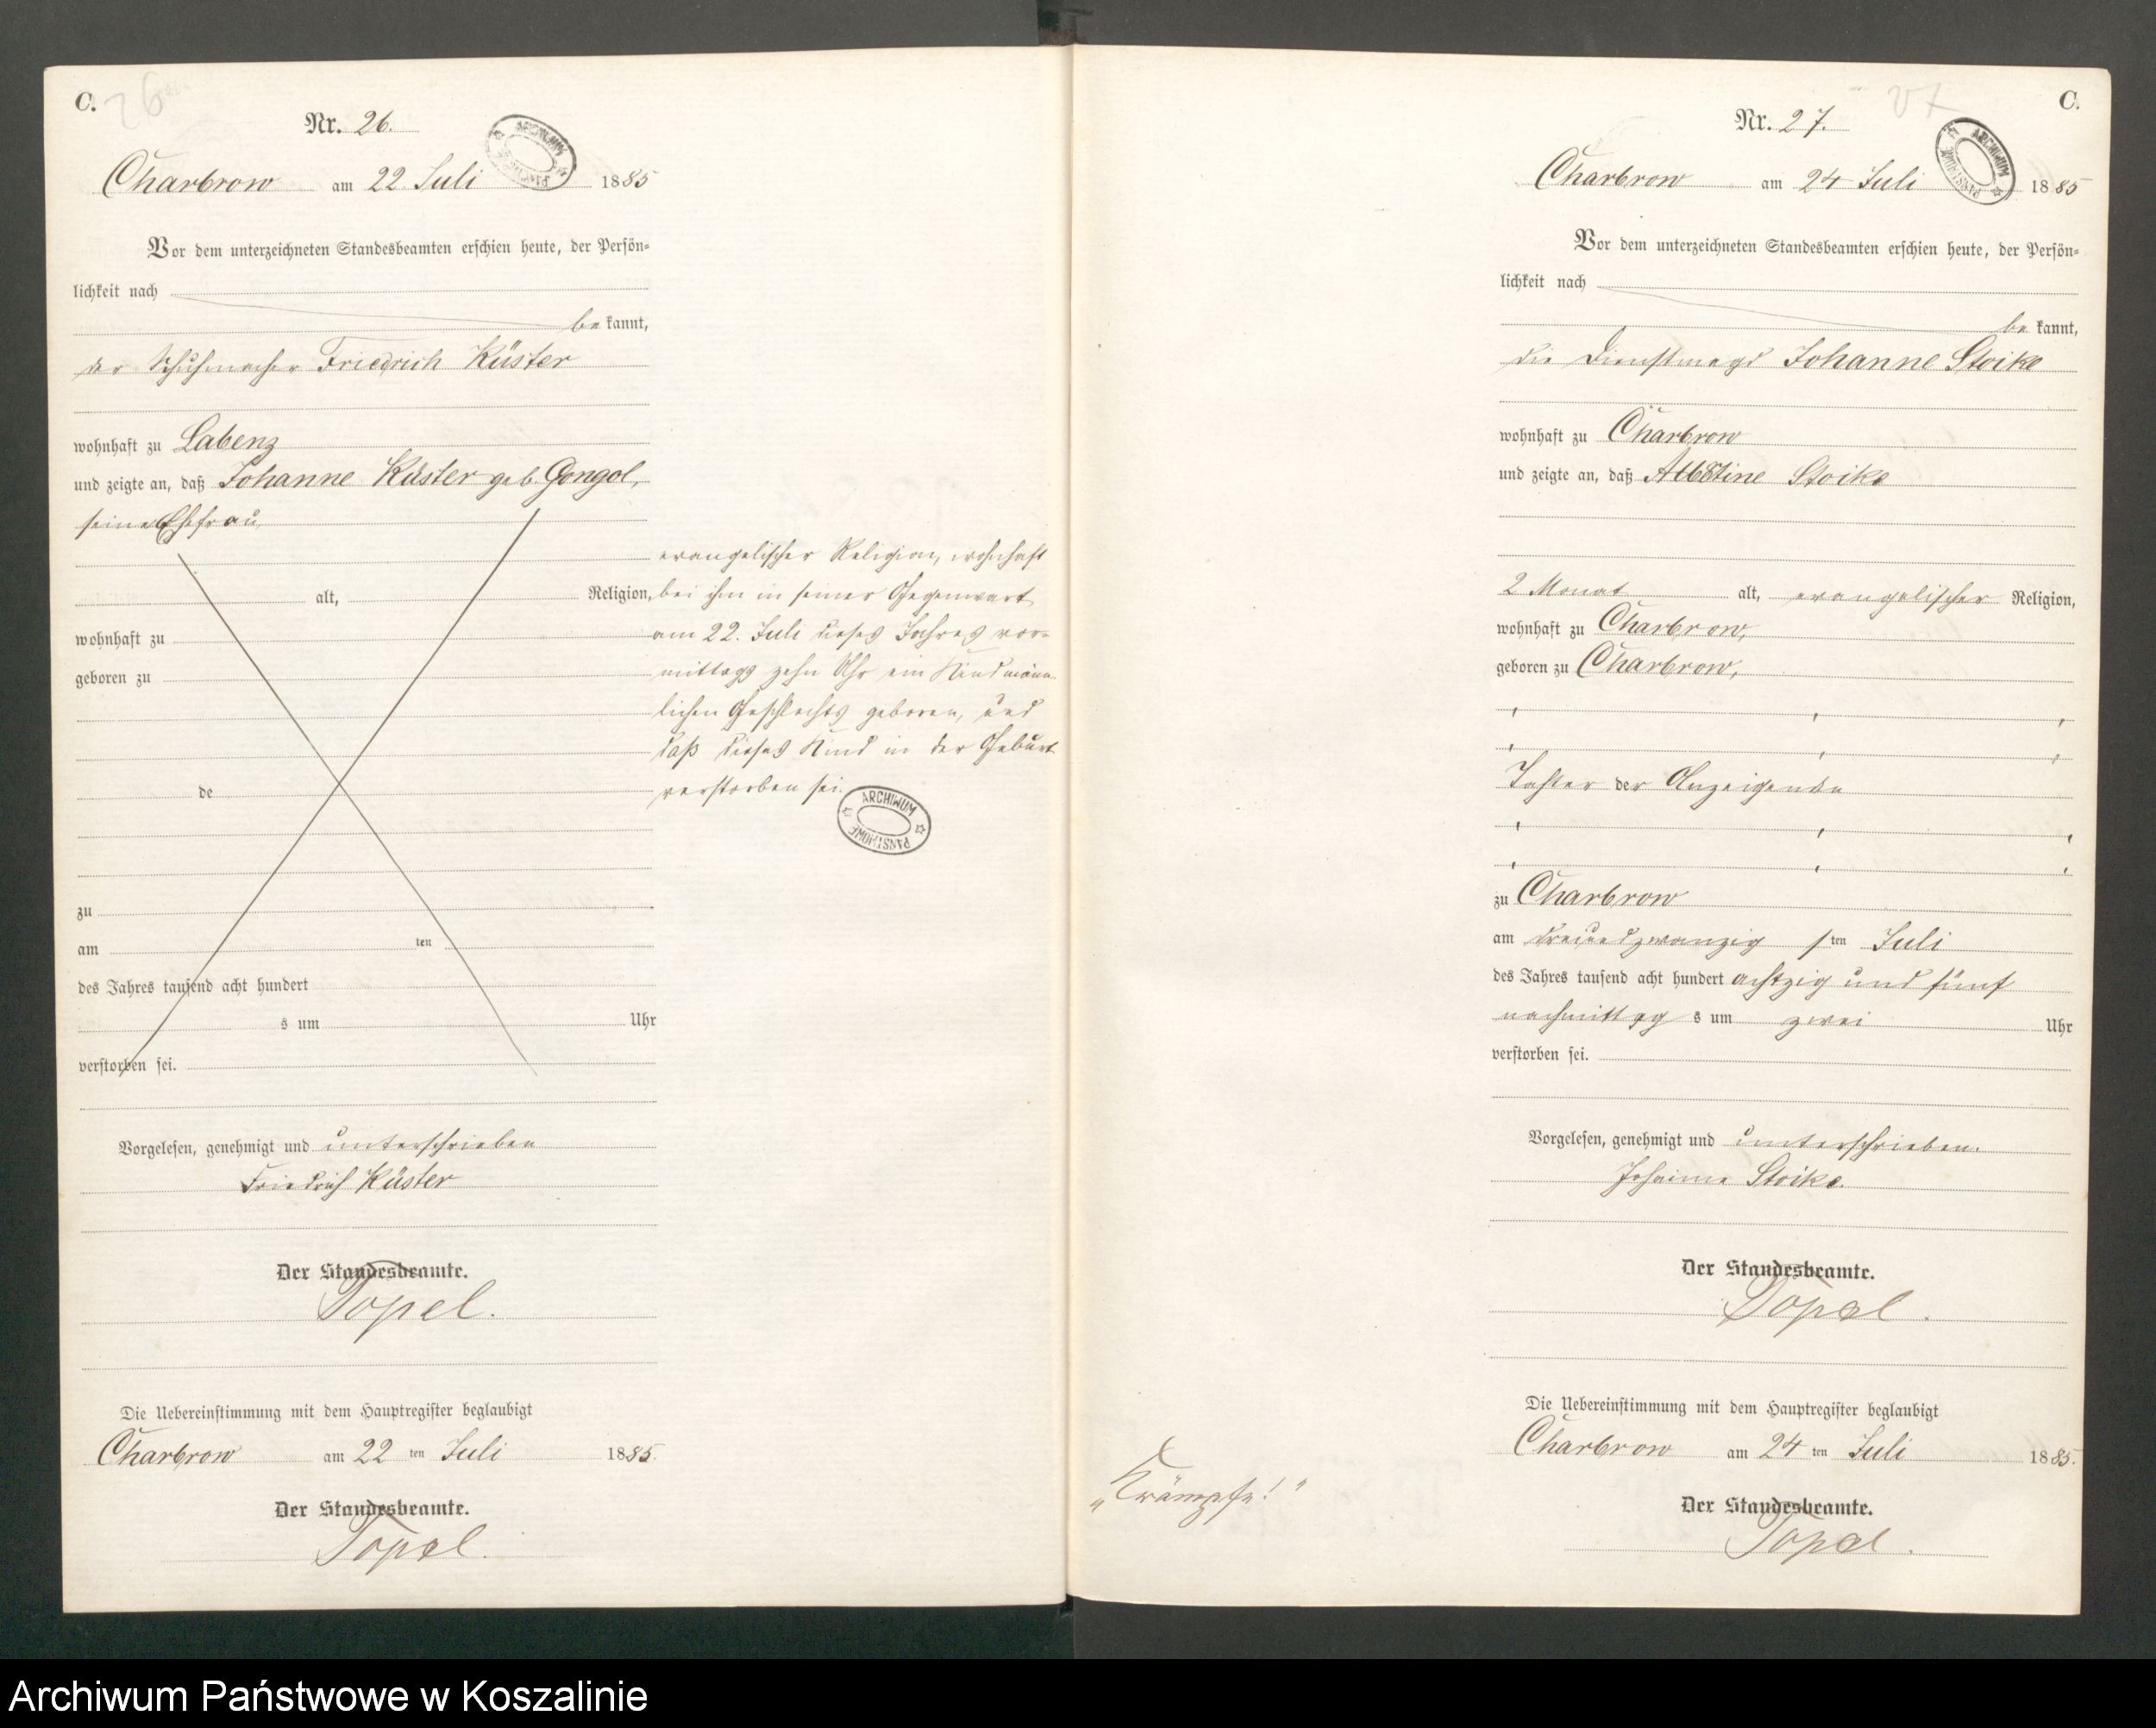 C.
26
Nr. 26.
Charbrow am 22 Juli 1885
Vor dem unterzeichneten Standesbeamten erschien heute, der Persön-
lichkeit nach
bekannt,
der Schuhmacher Friedrich Küster
wohnhaft zu Labenz
und zeigte an, daß Johanne Küster geb. Gongol,
seine Ehefrau
alt, Religion,
wohnhaft zu
geboren zu
de
zu
am ten
des Jahres tausend acht hundert
s um Uhr
verstorben sei.
evangelischer Religion, wohnhaft
bei ihm in seiner Gegenwart
am 22. Juli dieses Jahres vor-
mittags zehn Uhr ein Kind männ-
lichen Geschlechts geboren, und
daß dieses Kind in der Geburt
verstorben sei.
ARCHIWUM PAŃSTWOWE
Vorgelesen, genehmigt und unterschrieben
Friedrich Küster
Der Standesbeamte.
Topel.
Die Uebereinstimmung mit dem Hauptregister beglaubigt
Charbrow am 22 ten Juli 1885.
Der Standesbeamte.
Topel.
27
C.
Nr. 27.
ARCHIWUM PAŃSTWOWE
Charbrow am 24 Juli 1885
Vor dem unterzeichneten Standesbeamten erschien heute, der Persön-
lichkeit nach
bekannt,
die Dienstmagd Johanne Stoike
wohnhaft zu Charbrow
und zeigte an, daß Albertine Stoike
2 Monat alt, evangelischer Religion,
wohnhaft zu Charbrow,
geboren zu Charbrow,
Tochter der Anzeigenden
zu Charbrow
am dreiundzwanzigsten Juli
des Jahres tausend acht hundert achtzig und fünf
nachmittags um zwei Uhr
verstorben sei.
Vorgelesen, genehmigt und unterschrieben.
Johanne Stoike.
Der Standesbeamte.
Topel.
Die Uebereinstimmung mit dem Hauptregister beglaubigt
Charbrow am 24 ten Juli 1885.
Der Standesbeamte.
Topel.
„Krämpfe!"
Archiwum Państwowe w Koszalinie